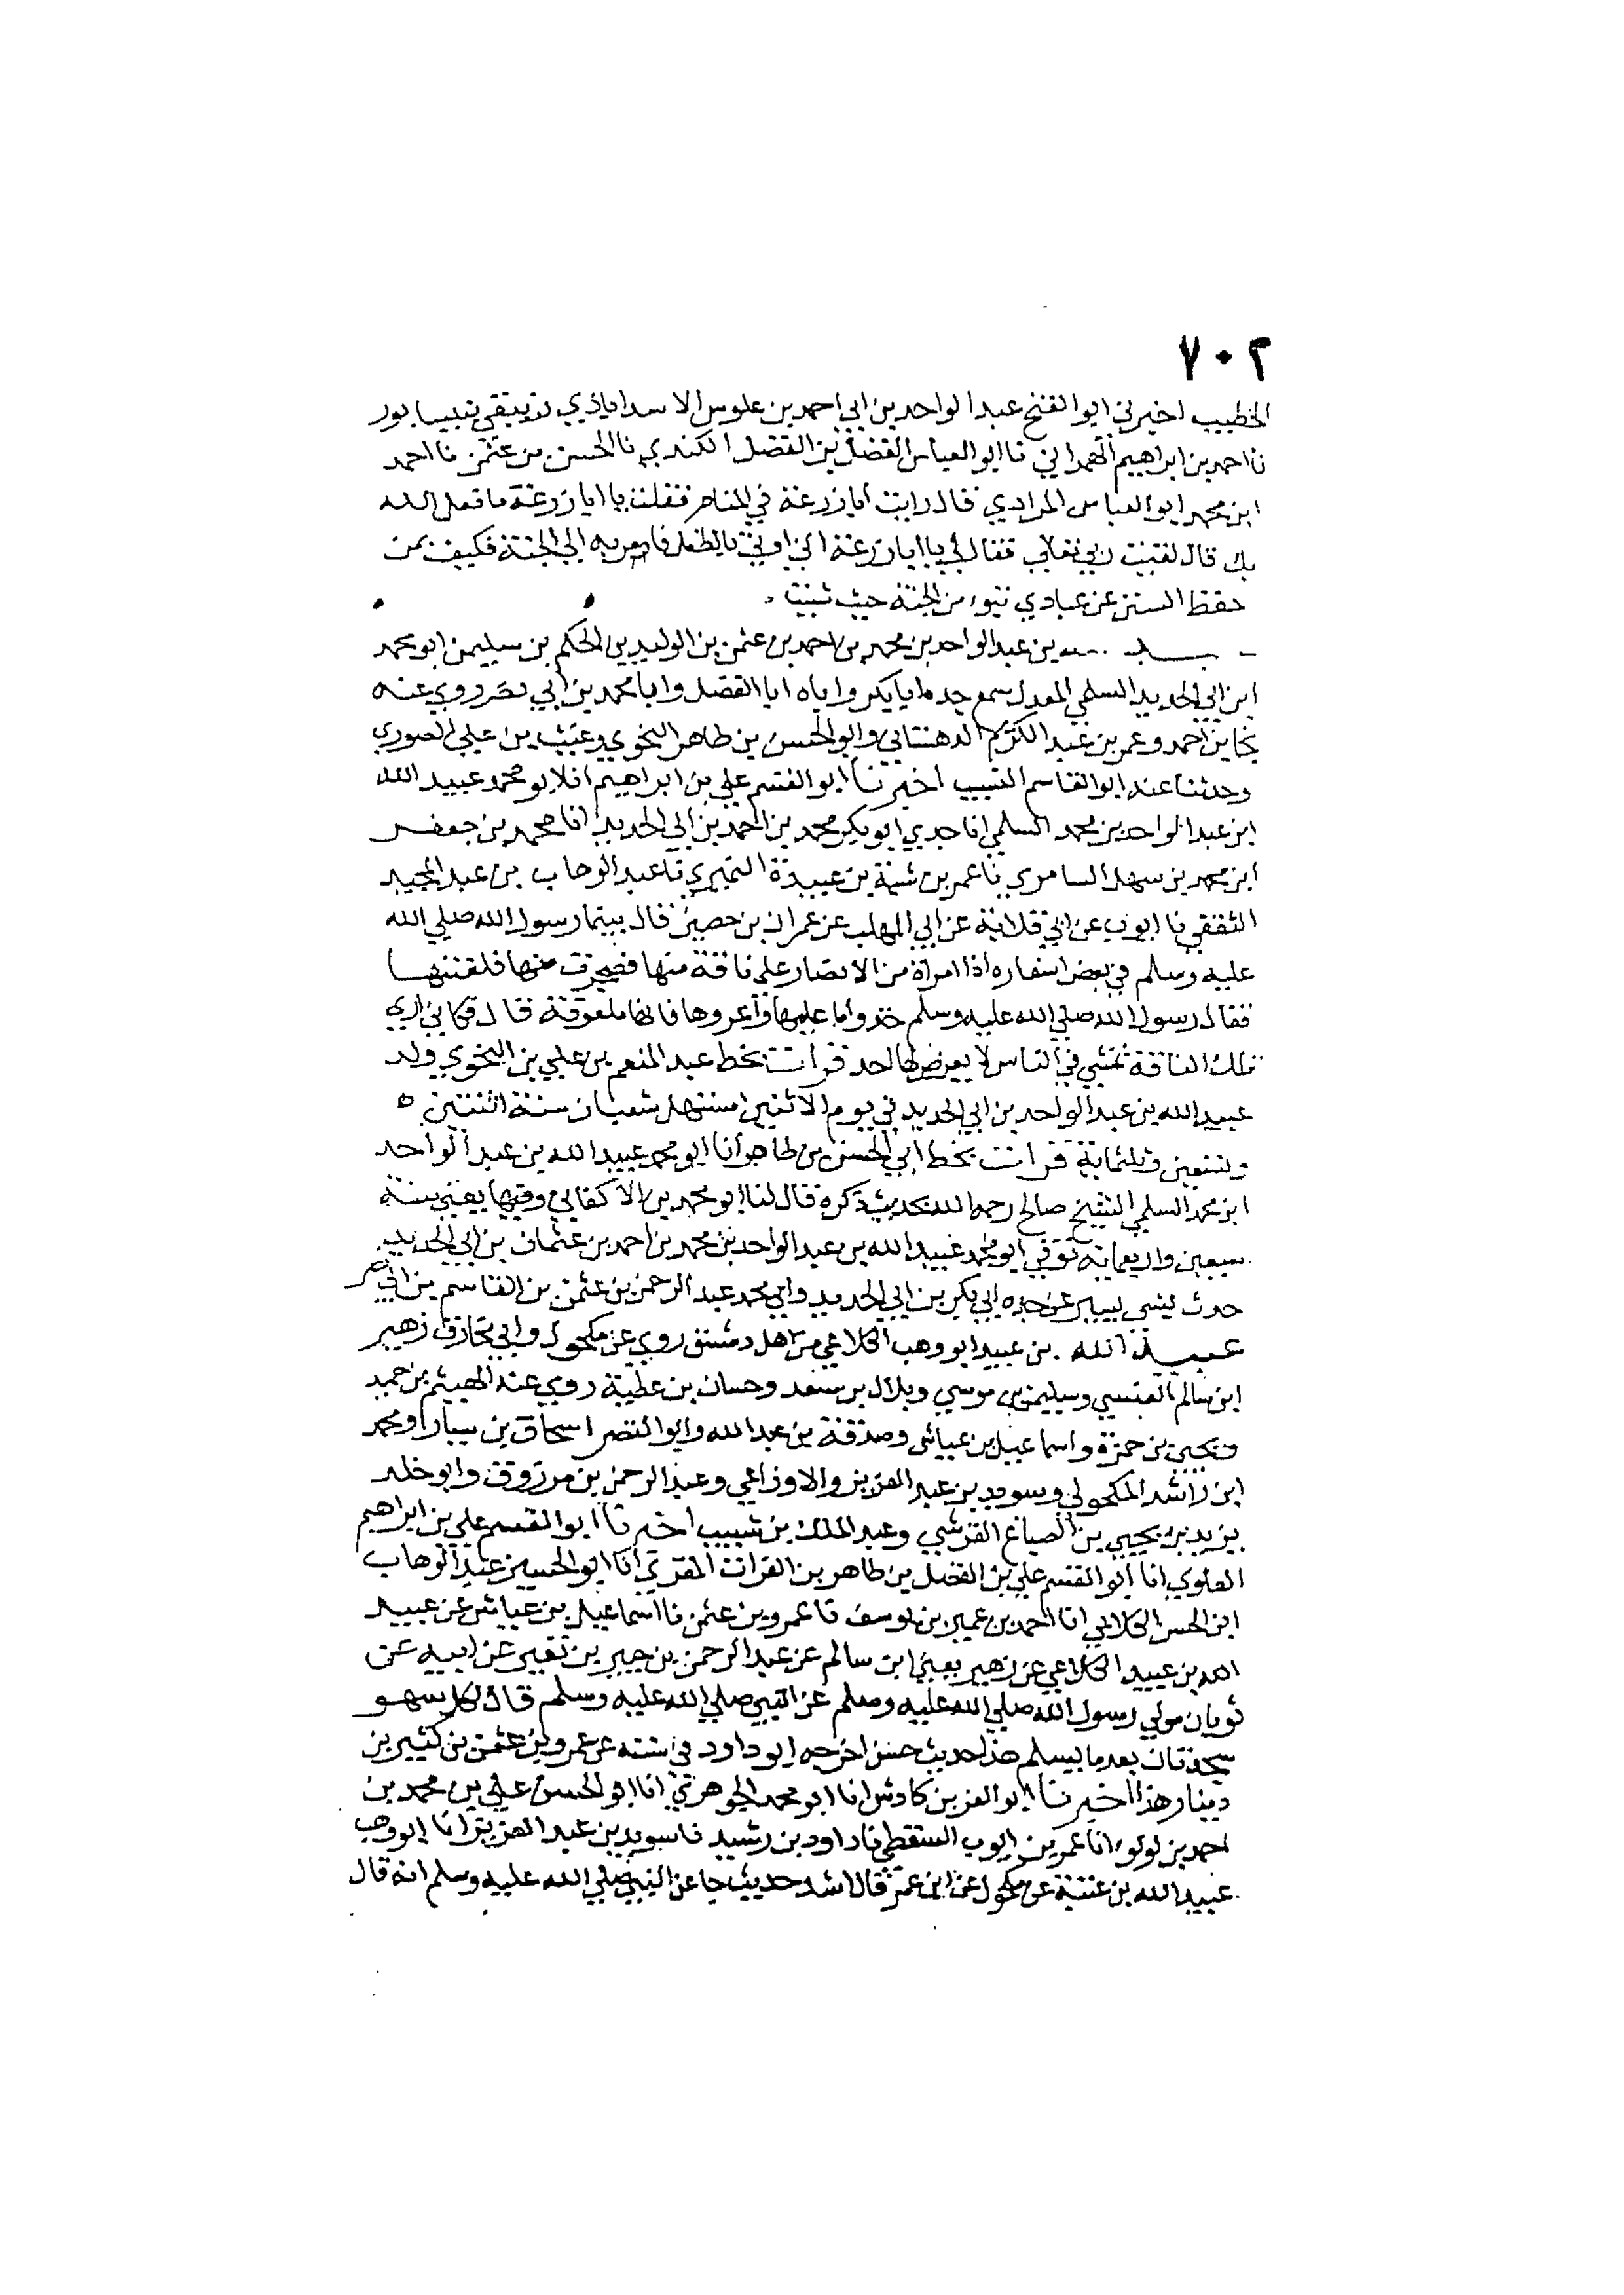 ٧٠٢
الخطيب اخبرني ابوالفتح عبدالواحد بن ابي احمد بن علوس الاسداباذي بنيسابور
نا احمد بن ابراهيم الهمداني نا ابوالعباس الفضل بن الفضل الكندي نا الحسن بن عثمن نا احمد
ابن محمد ابوالعباس المرادي قال رايت ابا زرعة في المنام فقلت يا ابا زرعة ما فعل الله
بك قال لقيت ربي تعالى فقال لي يا ابا زرعة اني اوتي بالطفل فامر به الي الجنة فكيف بمن
حفظ السنن عن عبادي تبوء من الجنة حيث شئت
بن عبدالواحد بن محمد بن احمد بن عثمن بن الوليد بن الحكم بن سليمن ابو محمد
ابن ابي الحديد السلمي المعدل سمع جده ابا بكر واباه ابا الفضل وابا محمد بن ابي نصر روي عنه
نجا بن احمد وعمر بن عبد الكريم الدهستاني وابوالحسن بن طاهر النحوي وغيث بن علي الصوري
وحدثنا عنه ابوالقاسم النسيب اخبرنا ابوالقسم علي بن ابراهيم انا ابو محمد عبيد الله
ابن عبدالواحد بن محمد السلمي انا جدي ابو بكر محمد بن احمد بن ابي الحديد انا محمد بن جعفر
ابن محمد بن سهل السامري نا عمر بن شبة بن عبيدة النميري نا عبدالوهاب بن عبدالمجيد
الثقفي نا ايوب عن ابي قلابة عن ابي المهلب عن عمران بن حصين قال بينما رسول الله صلي الله
عليه وسلم في بعض اسفاره اذا امراة من الانصار علي ناقة منها فضجرت منها فلعنتها
فقال رسول الله صلي الله عليه وسلم خذوا ما عليها واعروها فانها ملعونة قال فكاني اري
تلك الناقة تمشي في الناس لا يعرض لها احد قرات بخط عبد المنعم بن علي بن النحوي ولد
عبيد الله بن عبدالواحد بن ابي الحديد في يوم الاثنين مستهل شعبان سنة اثنتين
وتسعين وثلثماية قرات بخط ابي الحسن بن طاهر انا ابو محمد عبيد الله بن عبدالواحد
ابن محمد السلمي الشيخ صالح رحمه الله بحديث ذكره قال لنا ابو محمد بن الاكفاني وفيها يعني سنة
سبعين واربعماية توفي ابو محمد عبيد الله بن عبدالواحد بن محمد بن احمد بن عثمان بن ابي الحديد
حدث بشي يسير عن جده ابي بكر بن ابي الحديد وابي محمد عبد الرحمن بن عثمن بن القاسم بن ابي نصر
عبيد الله بن عبيد ابو وهب الكلاعي من اهل دمشق روي عن مكحول وابي مخارق زهير
ابن سالم العنسي وسليمن بن موسي وبلال بن سعد وحسان بن عطية روي عنه الهيثم بن حميد
ويحيي بن حمزة واسماعيل بن عياش وصدقة بن عبدالله وابوالنضر اسحاق بن سيار ومحمد
ابن راشد المكحولي وسويد بن عبد العزيز والاوزاعي وعبد الرحمن بن مرزوق وابو خلد
يزيد بن يحيي بن الصباغ القرشي وعبد الملك بن شبيب اخبرنا ابوالقسم علي بن ابراهيم
العلوي انا ابوالقسم علي بن الفضل بن طاهر بن الفرات المقري انا ابوالحسين عبدالوهاب
ابن الحسن الكلابي انا احمد بن عمير بن يوسف نا عمرو بن عثمن نا اسماعيل بن عياش عن عبيد
الله بن عبيد الكلاعي عن زهير يعني ابن سالم عن عبد الرحمن بن جبير بن نفير عن ابيه عن
ثوبان مولي رسول الله صلي الله عليه وسلم عن النبي صلي الله عليه وسلم قال لكل سهو
سجدتان بعد ما يسلم هذا حديث حسن اخرجه ابو داود في سننه عن عمرو بن عثمن بن كثير بن
دينار هذا اخبرنا ابوالعز بن كادش انا ابو محمد الجوهري انا ابوالحسن علي بن محمد بن
احمد بن لولو انا عمر بن ايوب السقطي نا داود بن رشيد نا سويد بن عبد العزيز انا ابو وهب
عبيد الله بن عتبة عن مكحول عن ابن عمر قال اشد حديث جا عن النبي صلي الله عليه وسلم انه قال